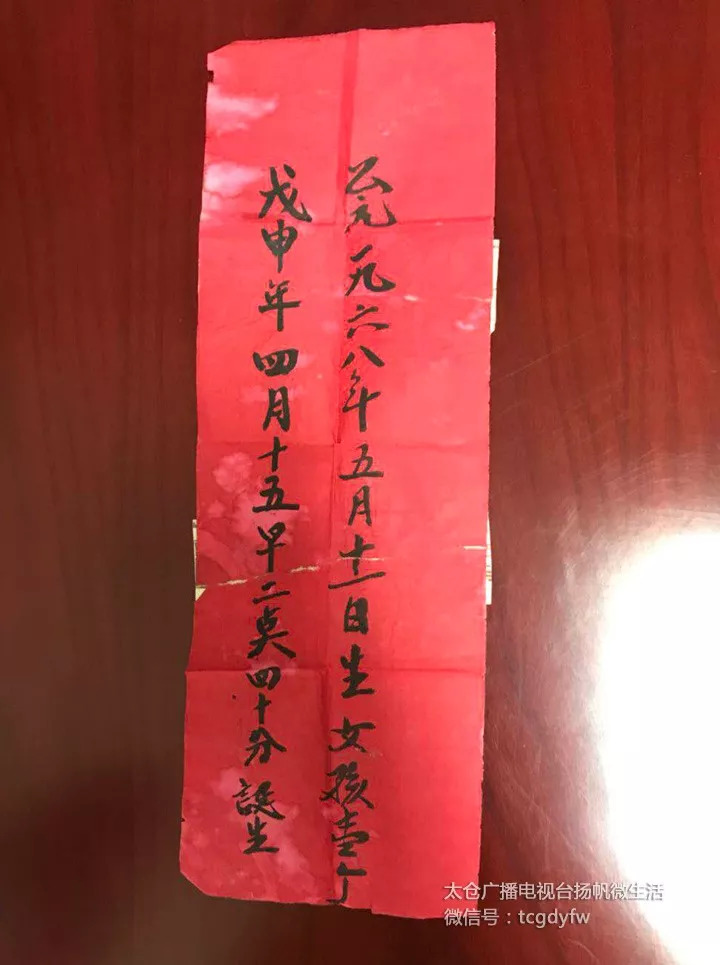 公元一九六八年五月十一日生女孩壹个
戊申年四月十五早二点四十分誕生
太仓广播电视台扬帆微生活
微信号：tcgdyfw